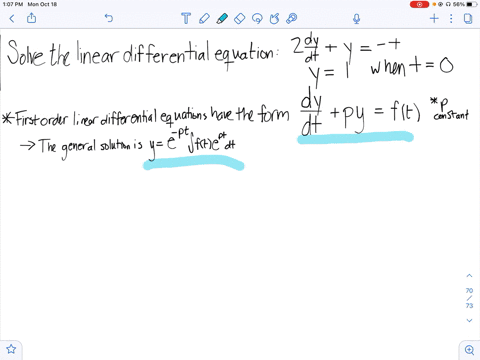 1:07 PM Mon Oct 18
56%
Solve the linear differential equation: 2 dy/dt + y = -t
y = 1 when t = 0
*First order linear differential equations have the form dy/dt + py = f(t) *P constant
→ The general solution is y = e^-pt ∫f(t)e^pt dt
70
/
73